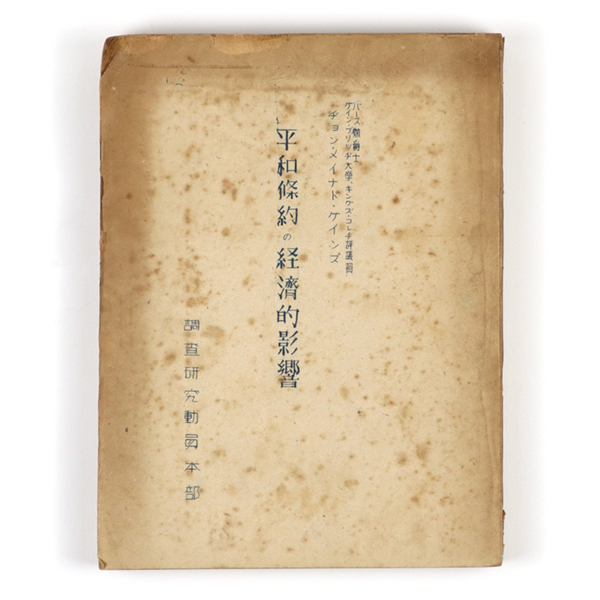 バース勲爵士
ケイン・ブリッヂ大學、キングス・コレヂ評議員
ヂョン・メイナド・ケインズ
平和條約の経濟的影響
調査研究動員本部